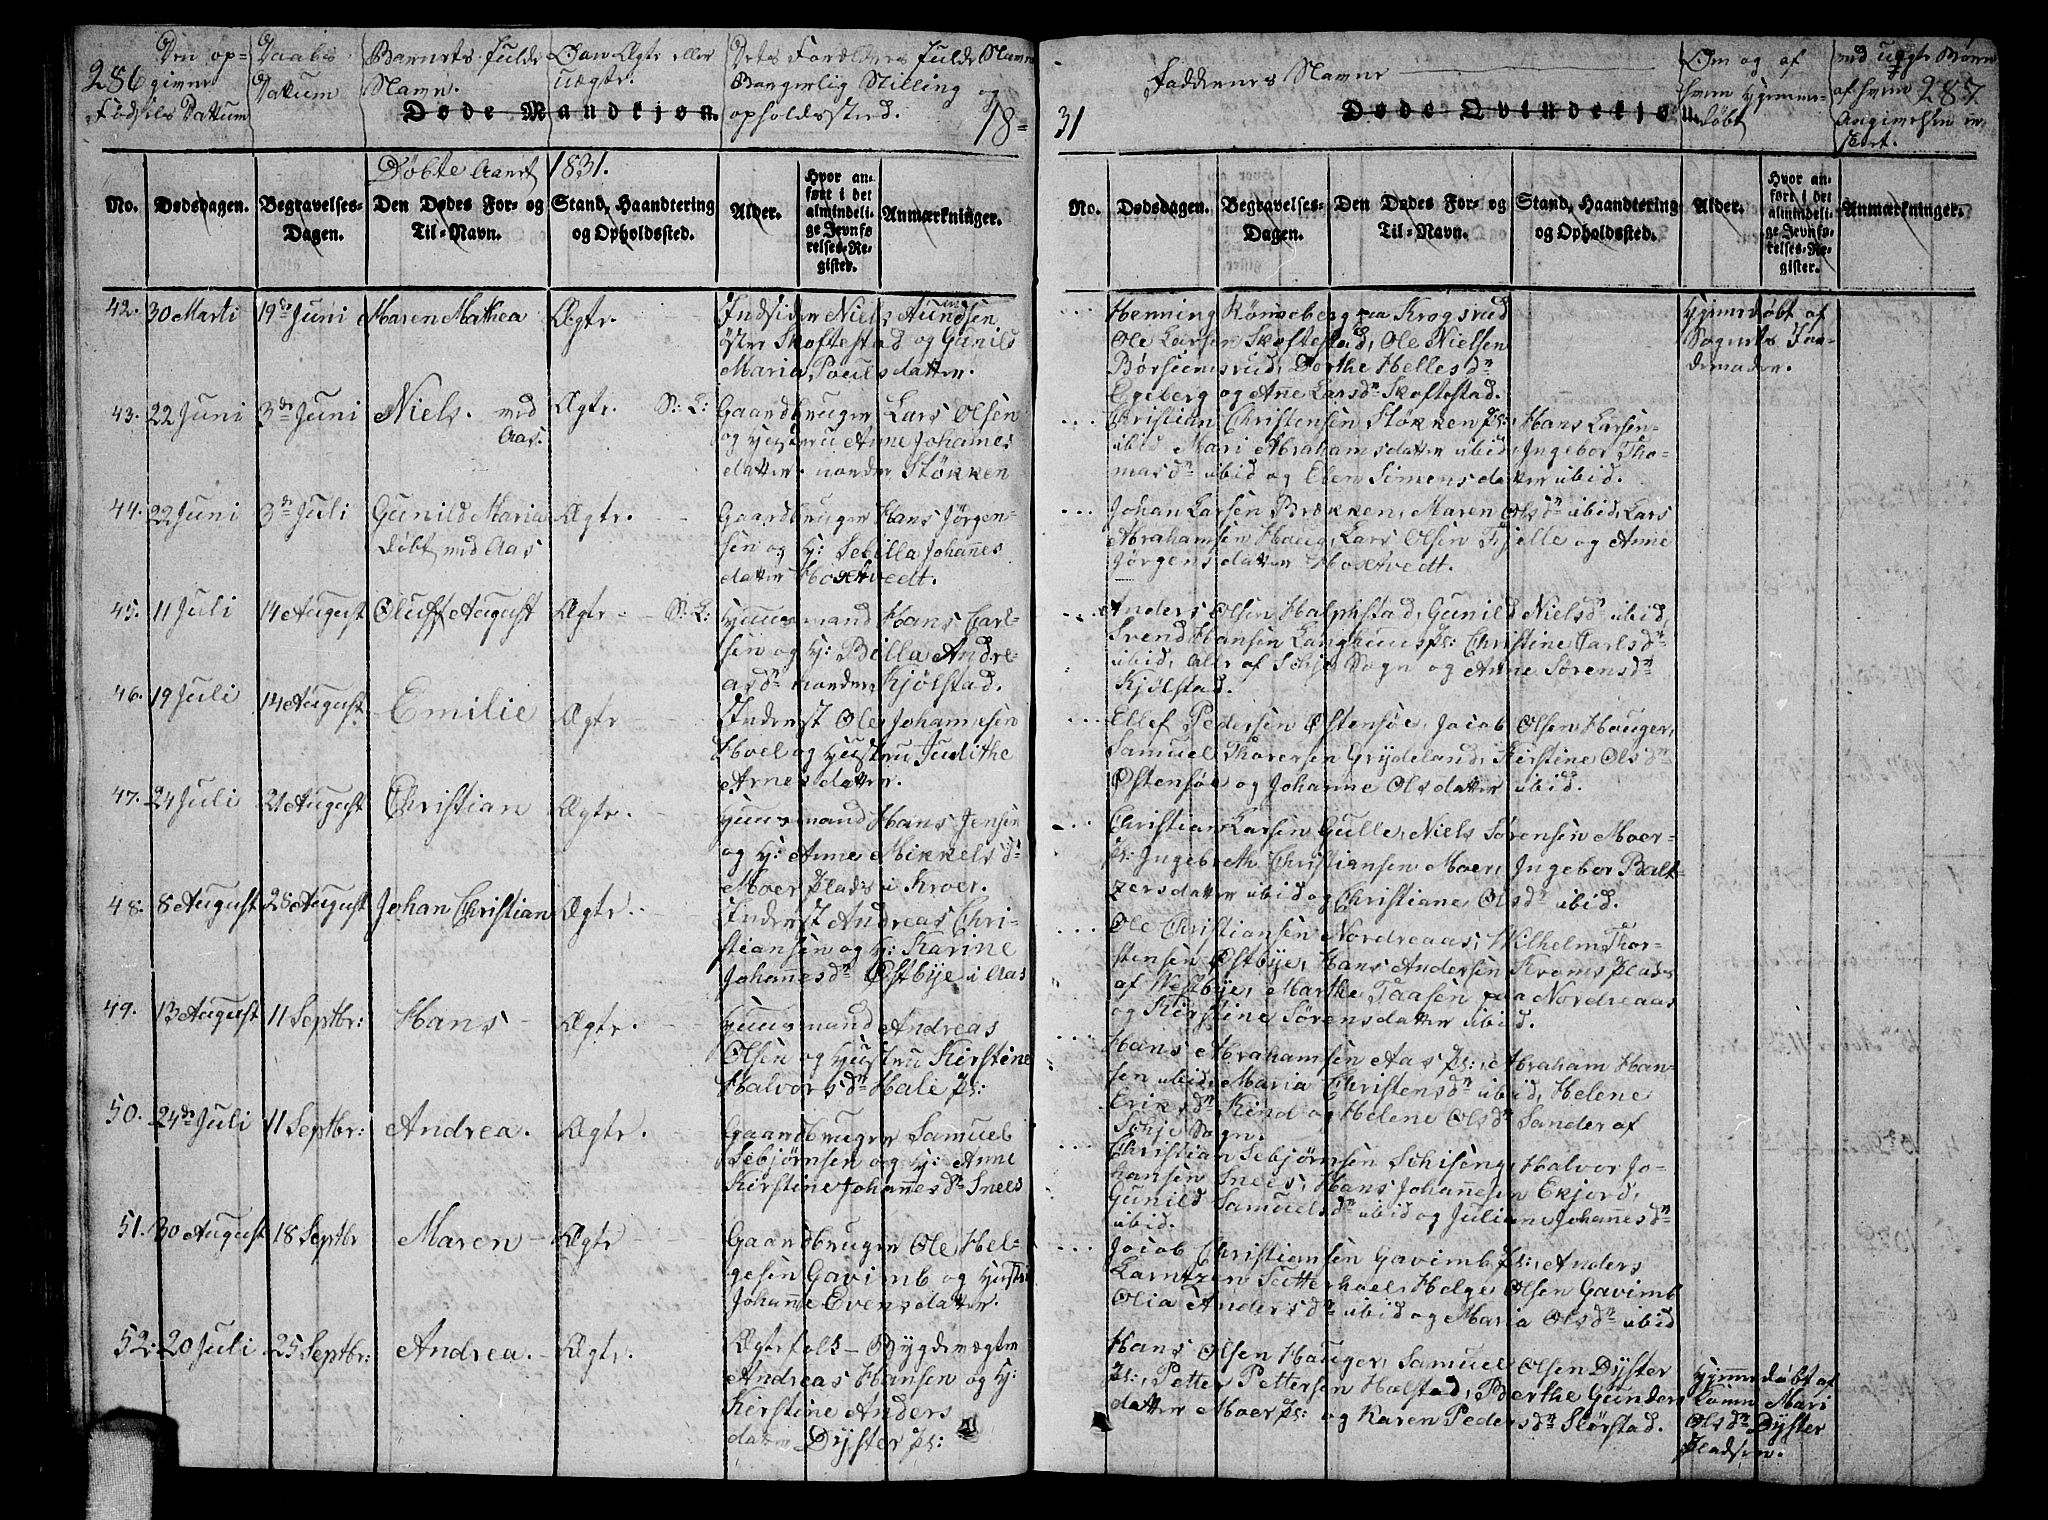 286
Den op-
givne
Fødsels Dattum
Daabs
Dattum
Barnets fulde
Navn.
Om Ægte eller
uægte.
Dets Forældres fulde Navne
Borgerlig Stilling og
opholdssted.
Døde Mandkjøn.
18=
Døbte Aaret 1831.
No.
Dødsdagen.
Begravelses-
Dagen.
Den Dødes For- og
Til-Navn.
Stand, Haandtering
og Opholdssted.
Alder.
Hvor an-
ført i det
almindeli-
ge Jevnfø-
relses-Re-
gister.
Anmærkninger.
42. 30 Marti 19de Juni Maren Mathea Ægte. Indsider Niels Amundsen
østre Skoftestad og Gunild
Maria Pouls datter.
43. 22 Juni 3de Juni Niels. med Aas. Ægte. S: L: Gaardbruger Lars Olsen
og Hustru Anne Johannes
datter nordre Støkken
44. 22 Juni 3de Juli Gunild Maria døbt med Aas Ægte. Gaardbruger Hans Jørgen-
sen og H: Sebilla Johannes
datter Hoxtvedt.
45. 11 Juli 14 August Oluff August Ægte S: L: Huusmand Hans Carl-
sen og H: Billa Andre-
asdr nordre Kjølstad.
46. 19 Juli 14 August Emilie Ægte Inderst Ole Johannesen
Hoel og Hustru Judithe
Arnesdatter.
47. 24 Juli 21 August Christian Ægte. Huusmand Hans Jensen
og H: Anne Mikkelsdr
Moer Plads i Kroer.
48. 8 August 28 August Johan Christian Ægte. Inderst Andreas Chri-
stiansen og H: Karine
Johannesdr Østbye i Aas
49. 13 August 11 Septbr: Hans Ægte. Huusmand Andreas
Olsen og Hustru Kirstine
Halvorsdr Hale Ps:
50. 24de Juli 11 Septbr: Andrea. Ægte. Gaardbruger Samuel
Sebjørnsen og H: Anne
Kirstine Johannesdr Snees
51. 30 August 18 Septbr Maren Ægte Gaardbruger Ole Hel-
gesen Gavimb og Hustru
Johanne Evensdatter.
52: 20 Juli 25 Septbr: Andrea. Ægte. Ægtefolk Bygdevægter
Andreas Hansen og H:
Kirstine Anders
datter Dyster Ps:
31
Faddernes Navne
Døde Qvindekjøn.
Om og af
hvem hjemme-
døbt
ved uægte Børn
af hvem
Angivelsen er
skeet.
287
No.
Dødsdagen.
Begravelses-
Dagen.
Den Dødes For- og
Til-Navn.
Stand, Haandtering
og Opholdssted.
Alder.
Hvor an-
ført i det
almindeli-
ge Jevnfø-
relses-Re-
gister.
Anmærkninger.
Henning Rønneberg paa Krogsrud
Ole Larsen Skoftestad, Ole Nielsen
Børsumsrud, Dorthe Hellesdr
Egeberg og Anne Larsdr Skoftestad.
Hjemmedøbt af
Sognets Jor-
demoder.
Christian Christensen Støkken Ps:, Hans Larsen
ubid. Mari Abrahamsdatter ubid, Ingebor Tho-
masdr ubid og Elen Simensdatter ubid.
Johan Larsen Brækken, Maren Olsdr ubid, Lars
Abrahamsen Haug, Lars Olsen Fjelle og Anne
Jørgensdatter Hoxtvedt.
Anders Olsen Halphstad, Gunild Nielsdr ubid,
Svend Hansen Langhuus Ps: Christine Carlsdr
ubid, alle af Schje Sogn og Anne Sørensdr
Kjølstad.
Ellef Pedersen Østensøe, Jacob Olsen Hauger,
Samuel Thoresen Grydeland, Kirstine Olsdr
Østensøe og Johanne Olsdatter ubid.
Christian Larsen Gulle, Niels Sørensen Moer
Ps: Ingebreth Christiansen Moer, Ingebor Balt-
zersdatter ubid og Christiane Olsdr ubid.
Ole Christiansen Nordreaas, Wilhelm Thor-
stensen Østbye, Hans Andersen Kroms Plads
af Westbye, Marthe Taasen paa Nordreaas
og Kirstine Sørensdatter ubid.
Hans Abrahamsen Aas Ps:, Abraham Han-
sen ubid, Maria Christensdr ubid, Helene
Eriksdr Kind og Helene Olsdr Sander af
Schje Sogn.
Christian Sebjørnsen Schiseng, Halvor Jo-
hansen Snees, Hans Johannesen Ekjord,
Gunild Samuelsdr ubid og Juliane Johannesdr
ubid.
Jacob Christiansen Gavimb Ps:, Anders
Larntzen Sætterhoel, Helge Olsen Gavimb
Olia Andersdr ubid og Maria Olsdr ubid
Hans Olsen Hauger, Samuel Olsen Dyster
Ps:, Petter Pettersen Holstad, Berthe Gunders
datter Moer Ps: og Karen Pedersdr Størstad.
Hjemmedøbt af
Konen Mari
Olsdr Dyster
Pladsen.